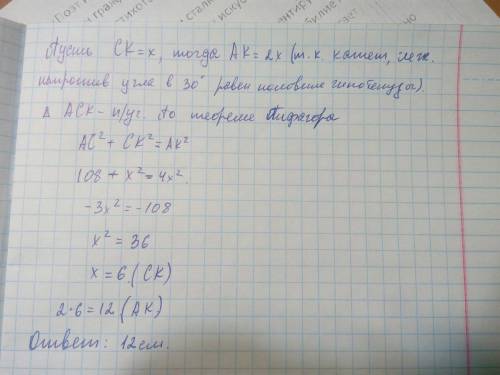 Пусть CK = x, тогда AK = 2x (т.к. катет, леж.
напротив угла в 30° равен половине гипотенузы).
Δ ACK - п/уг. По теореме Пифагора
AC² + CK² = AK²
108 + x² = 4x².
-3x² = -108
x² = 36
x = 6. (CK)
2·6 = 12 (AK)
Ответ: 12 см.